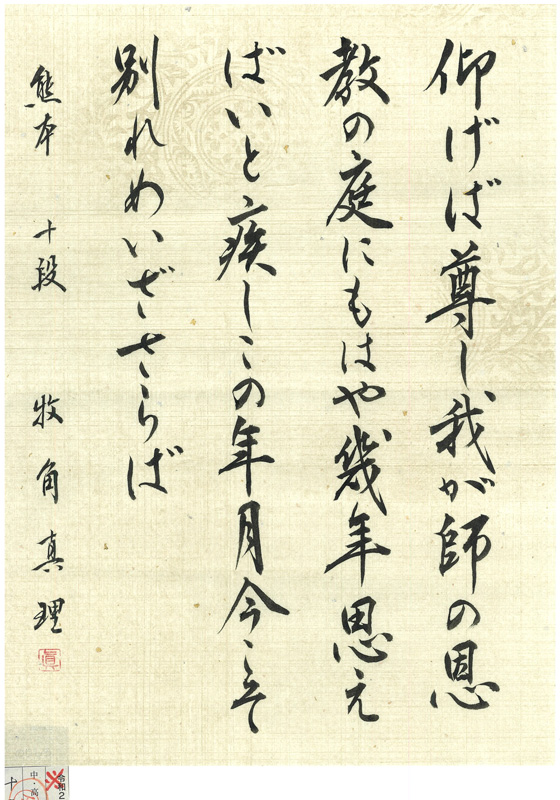 仰げば尊し我が師の恩
教の庭にもはや幾年思え
ばいと疾しこの年月今こそ
別れめいざさらば
熊本 十段 牧角真理
眞
令和2
中・高
十